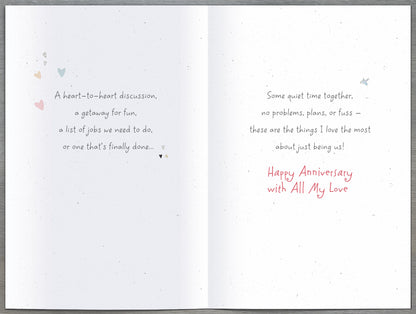 A heart-to-heart discussion,
a getaway for fun,
a list of jobs we need to do,
or one that's finally done...
Some quiet time together,
no problems, plans, or fuss –
these are the things I love the most
about just being us!
Happy Anniversary
with All My Love